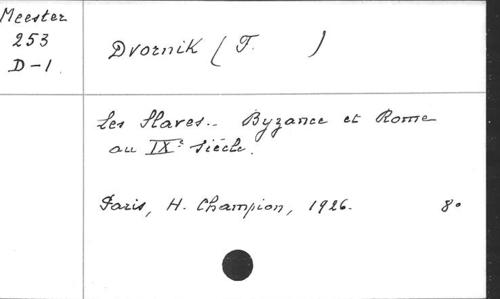 Meester
253
D-1.
Dvornik (F. )
Les Slaves.. Byzance et Rome
au IXe Siècle.
Paris, H. Champion, 1926. 8o